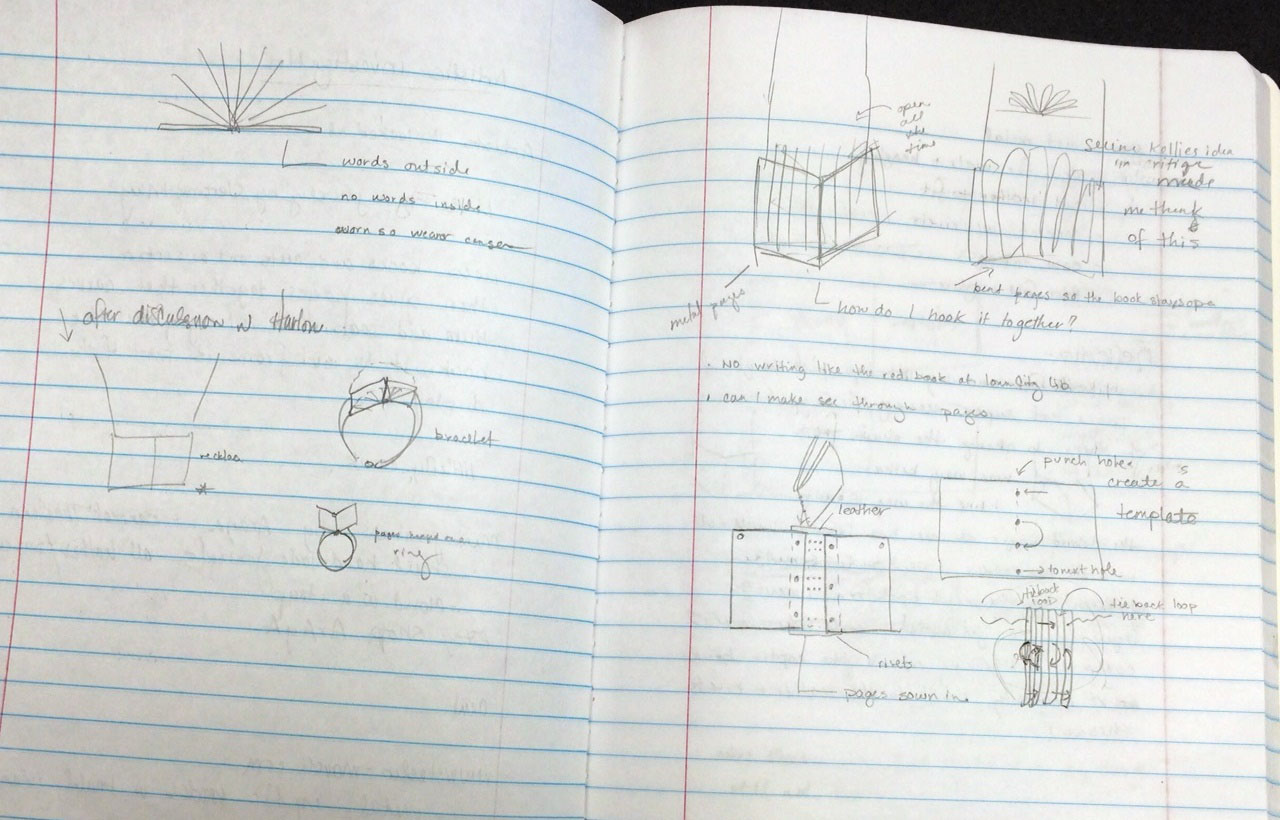 words outside
no words inside
worn so wearer can see
after discussion w Harlow
necklac
bracelet
ring
open
all
the
time
seeing Kellies idea
in critique
made
me think
of this
metal pages
bent pages so the book stays ope
how do I hook it together?
. No writing like the red book at
. can I make see through pages
leather
punch holes
create a
template
→ to next hole
tie back
loop
tie back loop
here
rivets
pages sown in.